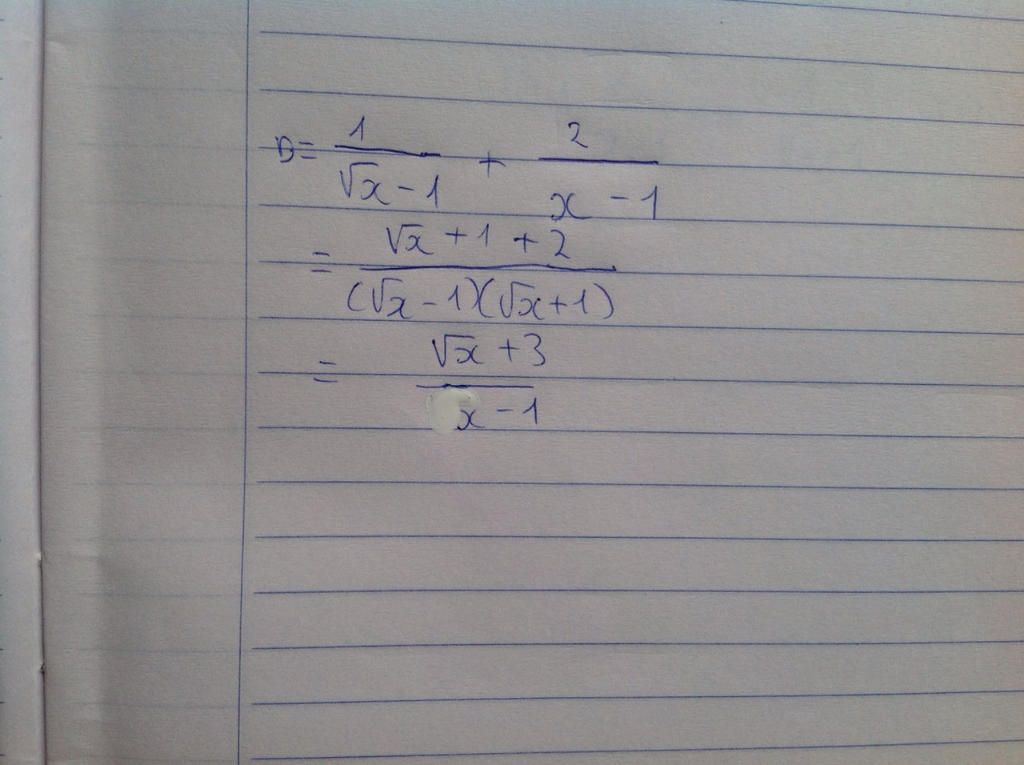 D = \frac{1}{\sqrt{x} - 1} + \frac{2}{x - 1}
= \frac{\sqrt{x} + 1 + 2}{(\sqrt{x} - 1)(\sqrt{x} + 1)}
= \frac{\sqrt{x} + 3}{x - 1}